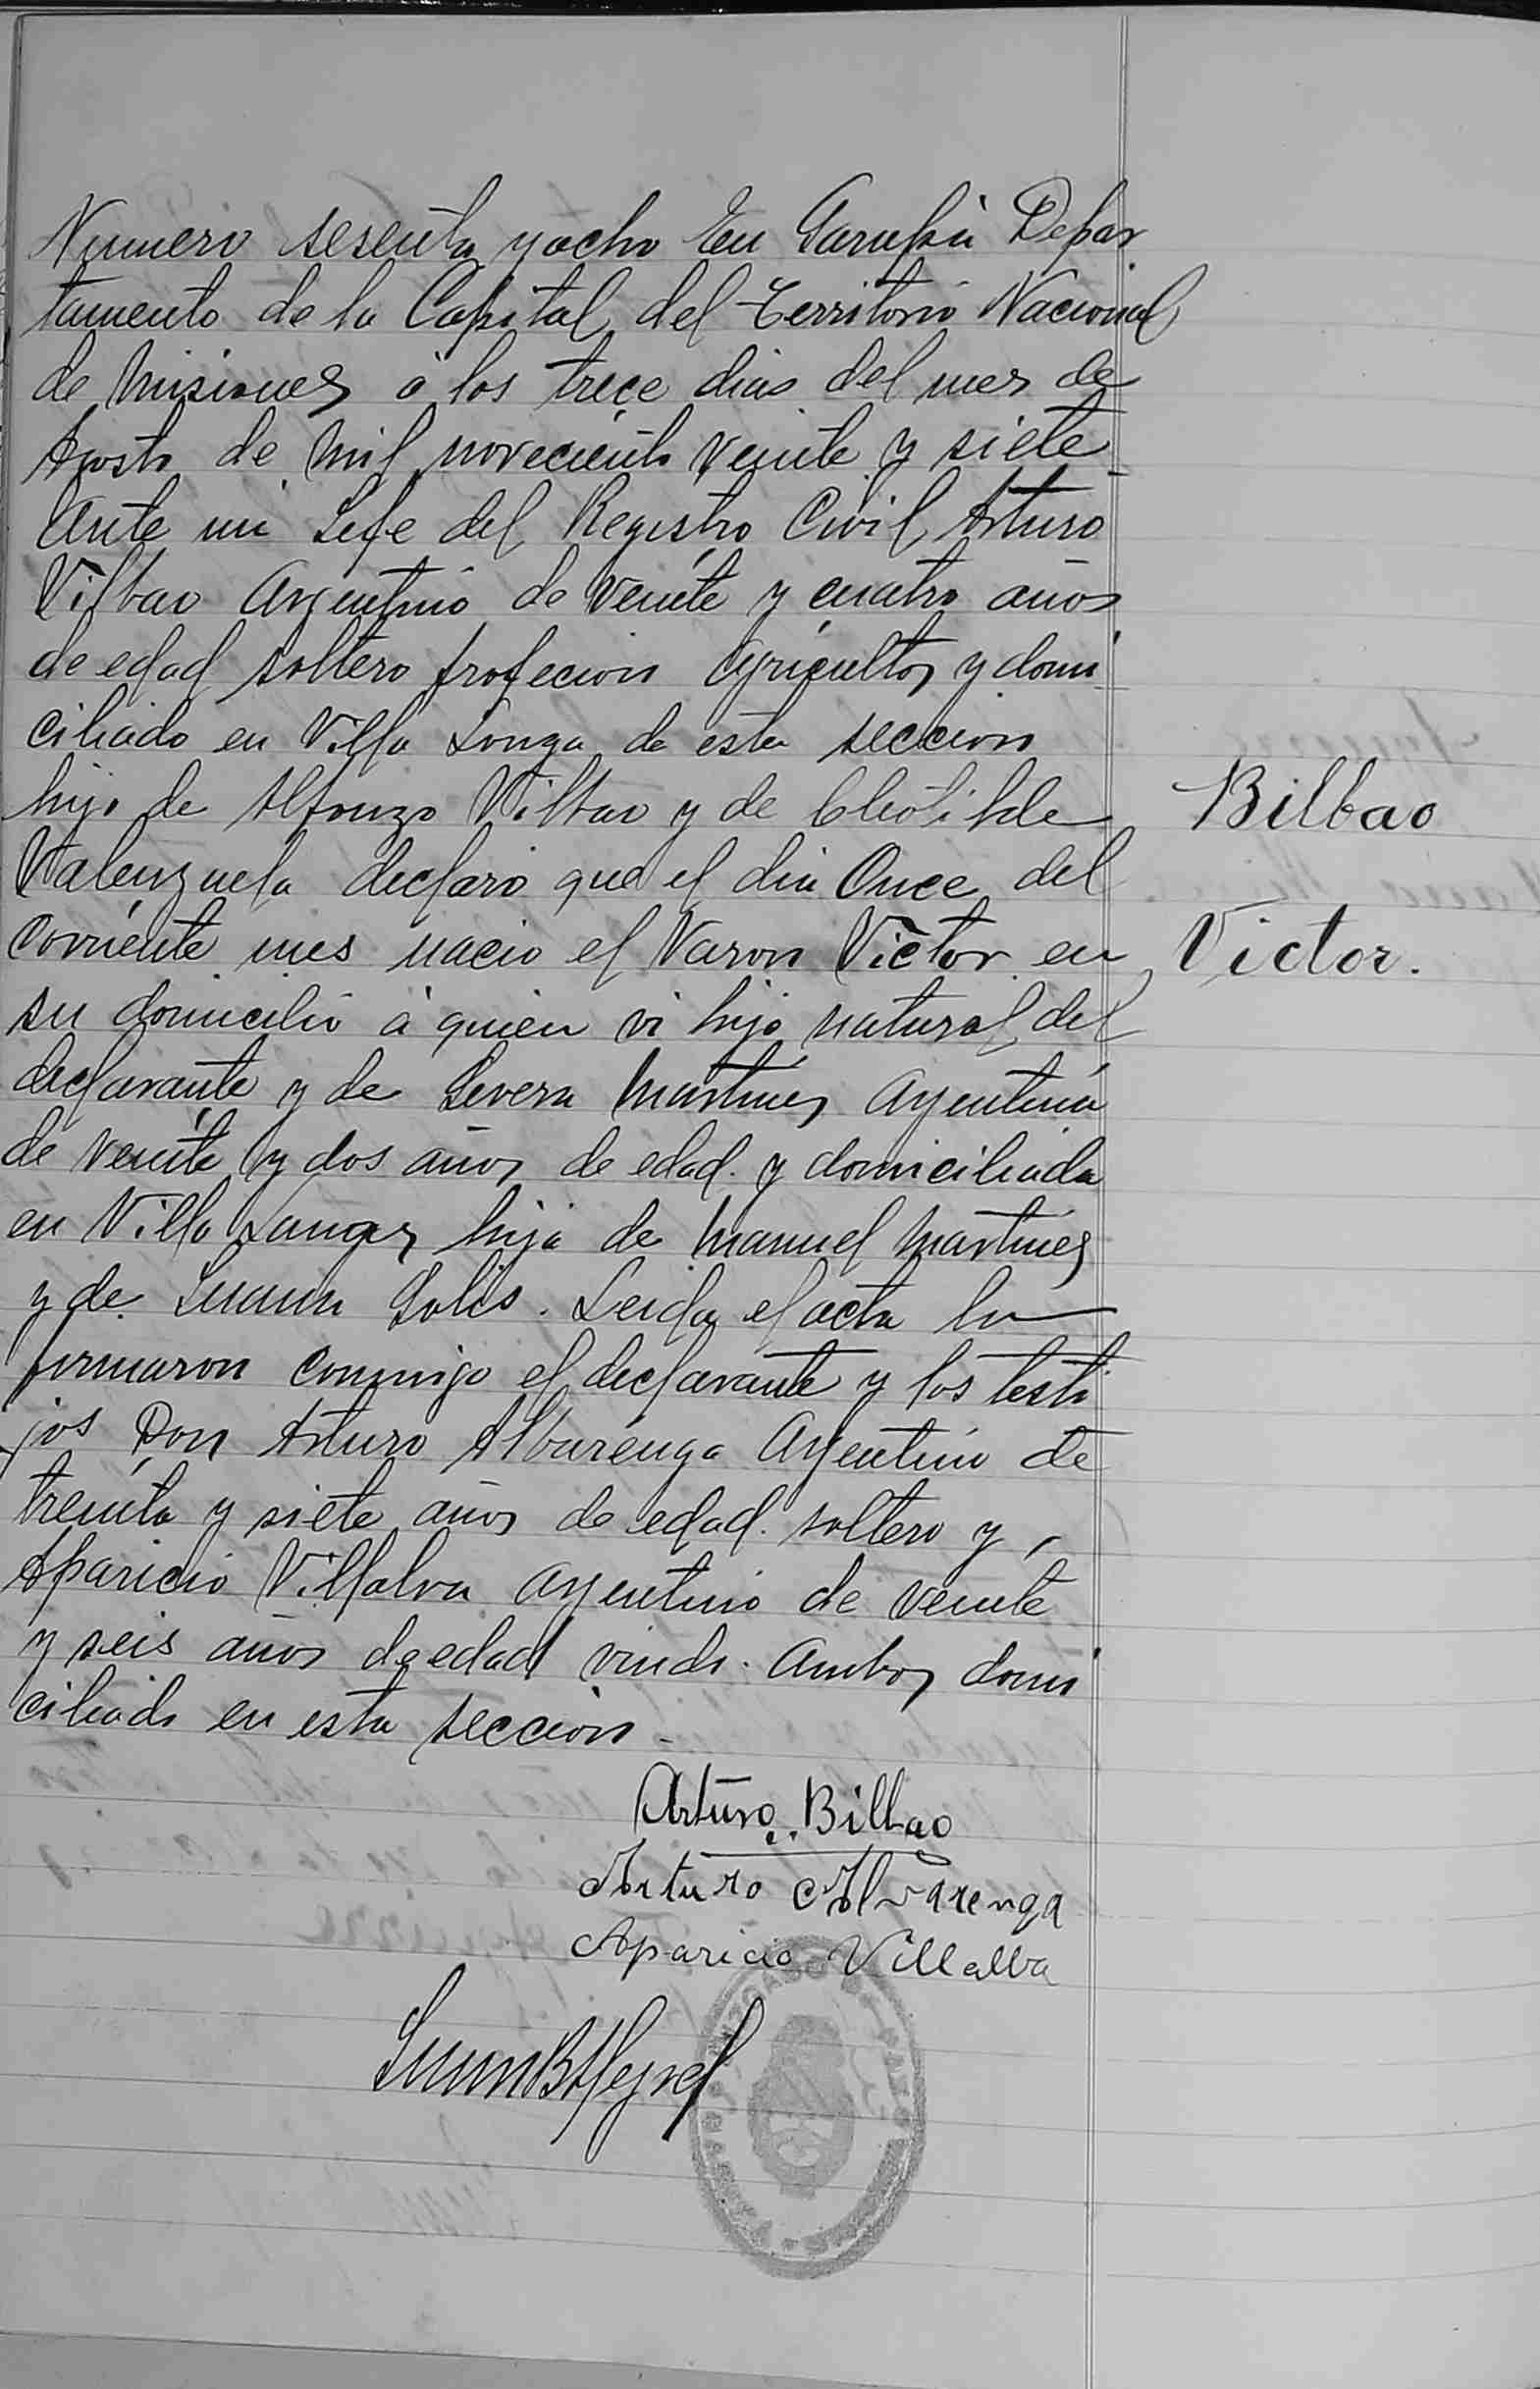 Numero sesenta y ocho En Garupá Depar
tamento de la Capital del Territorio Nacional
de Misiones á los trece dias del mes de
Agosto de mil noveciento veinte y siete
Ante mi Jefe del Registro Civil Arturo
Vilbao Argentino de veinte y cuatro años
de edad soltero profecion Agricultor y domi
ciliado en Villa Longa de esta seccion
hijo de Alfonzo Vilbao y de Cleotilde
Valenzuela declaro que el dia Once del
Corriente mes nacio el Varon Victor en
su domicilio á quien vi hijo natural del
declarante y de Severa Martines Argentina
de veinte y dos años de edad. y domiciliada
en Villa Longa hija de Manuel Martines
y de Juana Solis. Leida el acta la
firmaron conmigo el declarante y los testi
jos Don Arturo Albarenga Argentino de
treinta y siete años de edad. soltero y
Aparicio Villalva Argentino de veinte
y seis años de edad viudo. Ambos domi
ciliado en esta seccion -
Bilbao
Victor.
Arturo Bilbao
Arturo Alvarenga
Aparicio Villalba